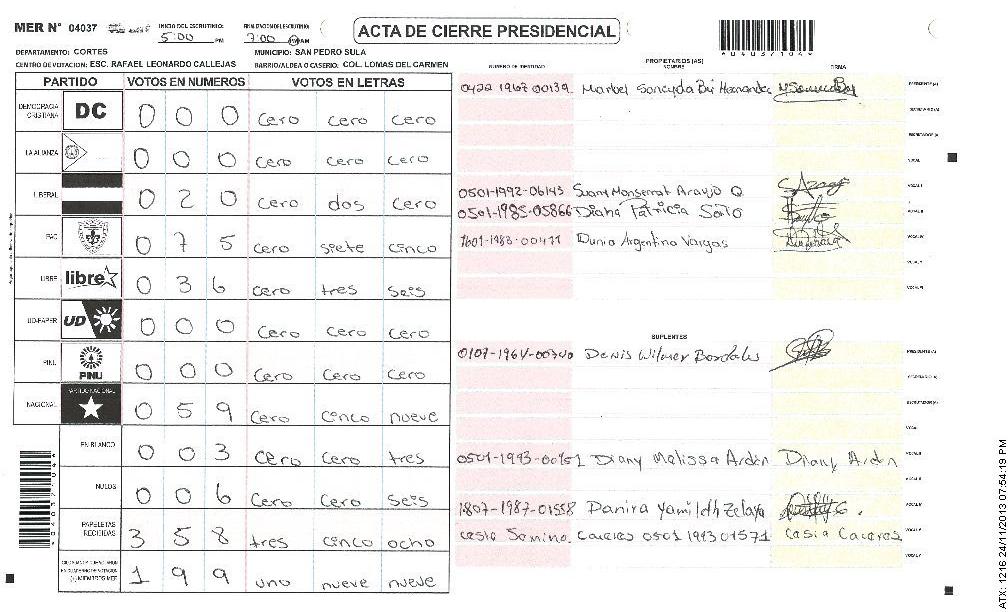 MER Nº 04037
INICIO DEL ESCRUTINIO:
5:00 PM
FINALIZACION DEL ESCRUTINIO:
7:00 PM
ACTA DE CIERRE PRESIDENCIAL
*04037104*
DEPARTAMENTO: CORTES
MUNICIPIO: SAN PEDRO SULA
CENTRO DE VOTACION: ESC. RAFAEL LEONARDO CALLEJAS
BARRIO/ALDEA O CASERIO: COL. LOMAS DEL CARMEN
PARTIDO VOTOS EN NUMEROS VOTOS EN LETRAS
DEMOCRACIA CRISTIANA DC 0 0 0 cero cero cero
LA ALIANZA 0 0 0 cero cero cero
LIBERAL 0 2 0 cero dos cero
PAC 0 7 5 cero siete cinco
LIBRE libre 0 3 6 cero tres seis
UD-FAPER UD 0 0 0 cero cero cero
PINU PINU 0 0 0 cero cero cero
NACIONAL PARTIDO NACIONAL 0 5 9 cero cinco nueve
EN BLANCO 0 0 3 cero cero tres
NULOS 0 0 6 cero cero seis
PAPELETAS RECIBIDAS 3 5 8 tres cinco ocho
(+) MIEMBROS MER 1 9 9 uno nueve nueve
PROPIETARIOS (AS)
NUMERO DE IDENTIDAD NOMBRE FIRMA
0422 1967 00139 Maribel Soncyda Bú Hernandez PRESIDENTE (A)
SECRETARIO (A)
ESCRUTADOR (A)
VOCAL
0501-1992-06143 Suany Monserrat Araujo O VOCAL I
0501-1985-05866 Diana Patricia Soto
1601-1983-00411 Dunia Argentina Vargas
SUPLENTES
0107-1964-00340 Denis Wilmer Bordales PRESIDENTE (A)
SECRETARIO (A)
ESCRUTADOR (A)
VOCAL
0501-1993-00951 Diany Melissa Ardón Diany Ardón
1807-1987-01558 Danira Yamileth Zelaya
Cesia Semina Caceres 0501 1993 01571 Cesia Caceres
ATX: 1216 24/11/2013 07:54:19 PM